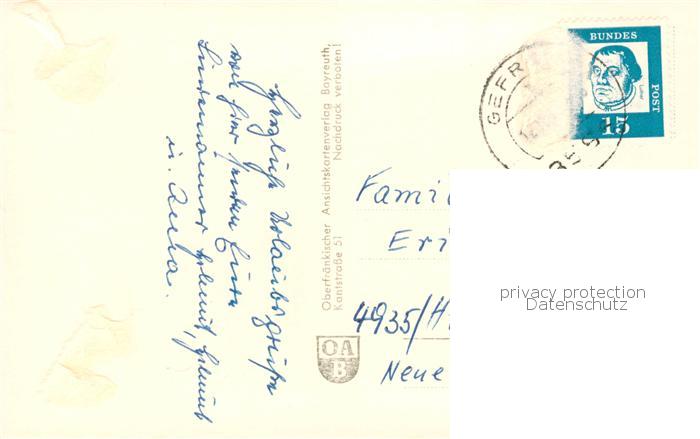 Herzliche Urlaubsgrüße
von hier senden Eure
Helmut, Helmut
u. Anna.
Oberfränkischer Ansichtskartenverlag Bayreuth,
Kantstraße 51
Nachdruck verboten!
OA
B
GEFR
8581
BUNDES
POST
Luther
15
Famil
Eri
4935/H
Neue
privacy protection
Datenschutz